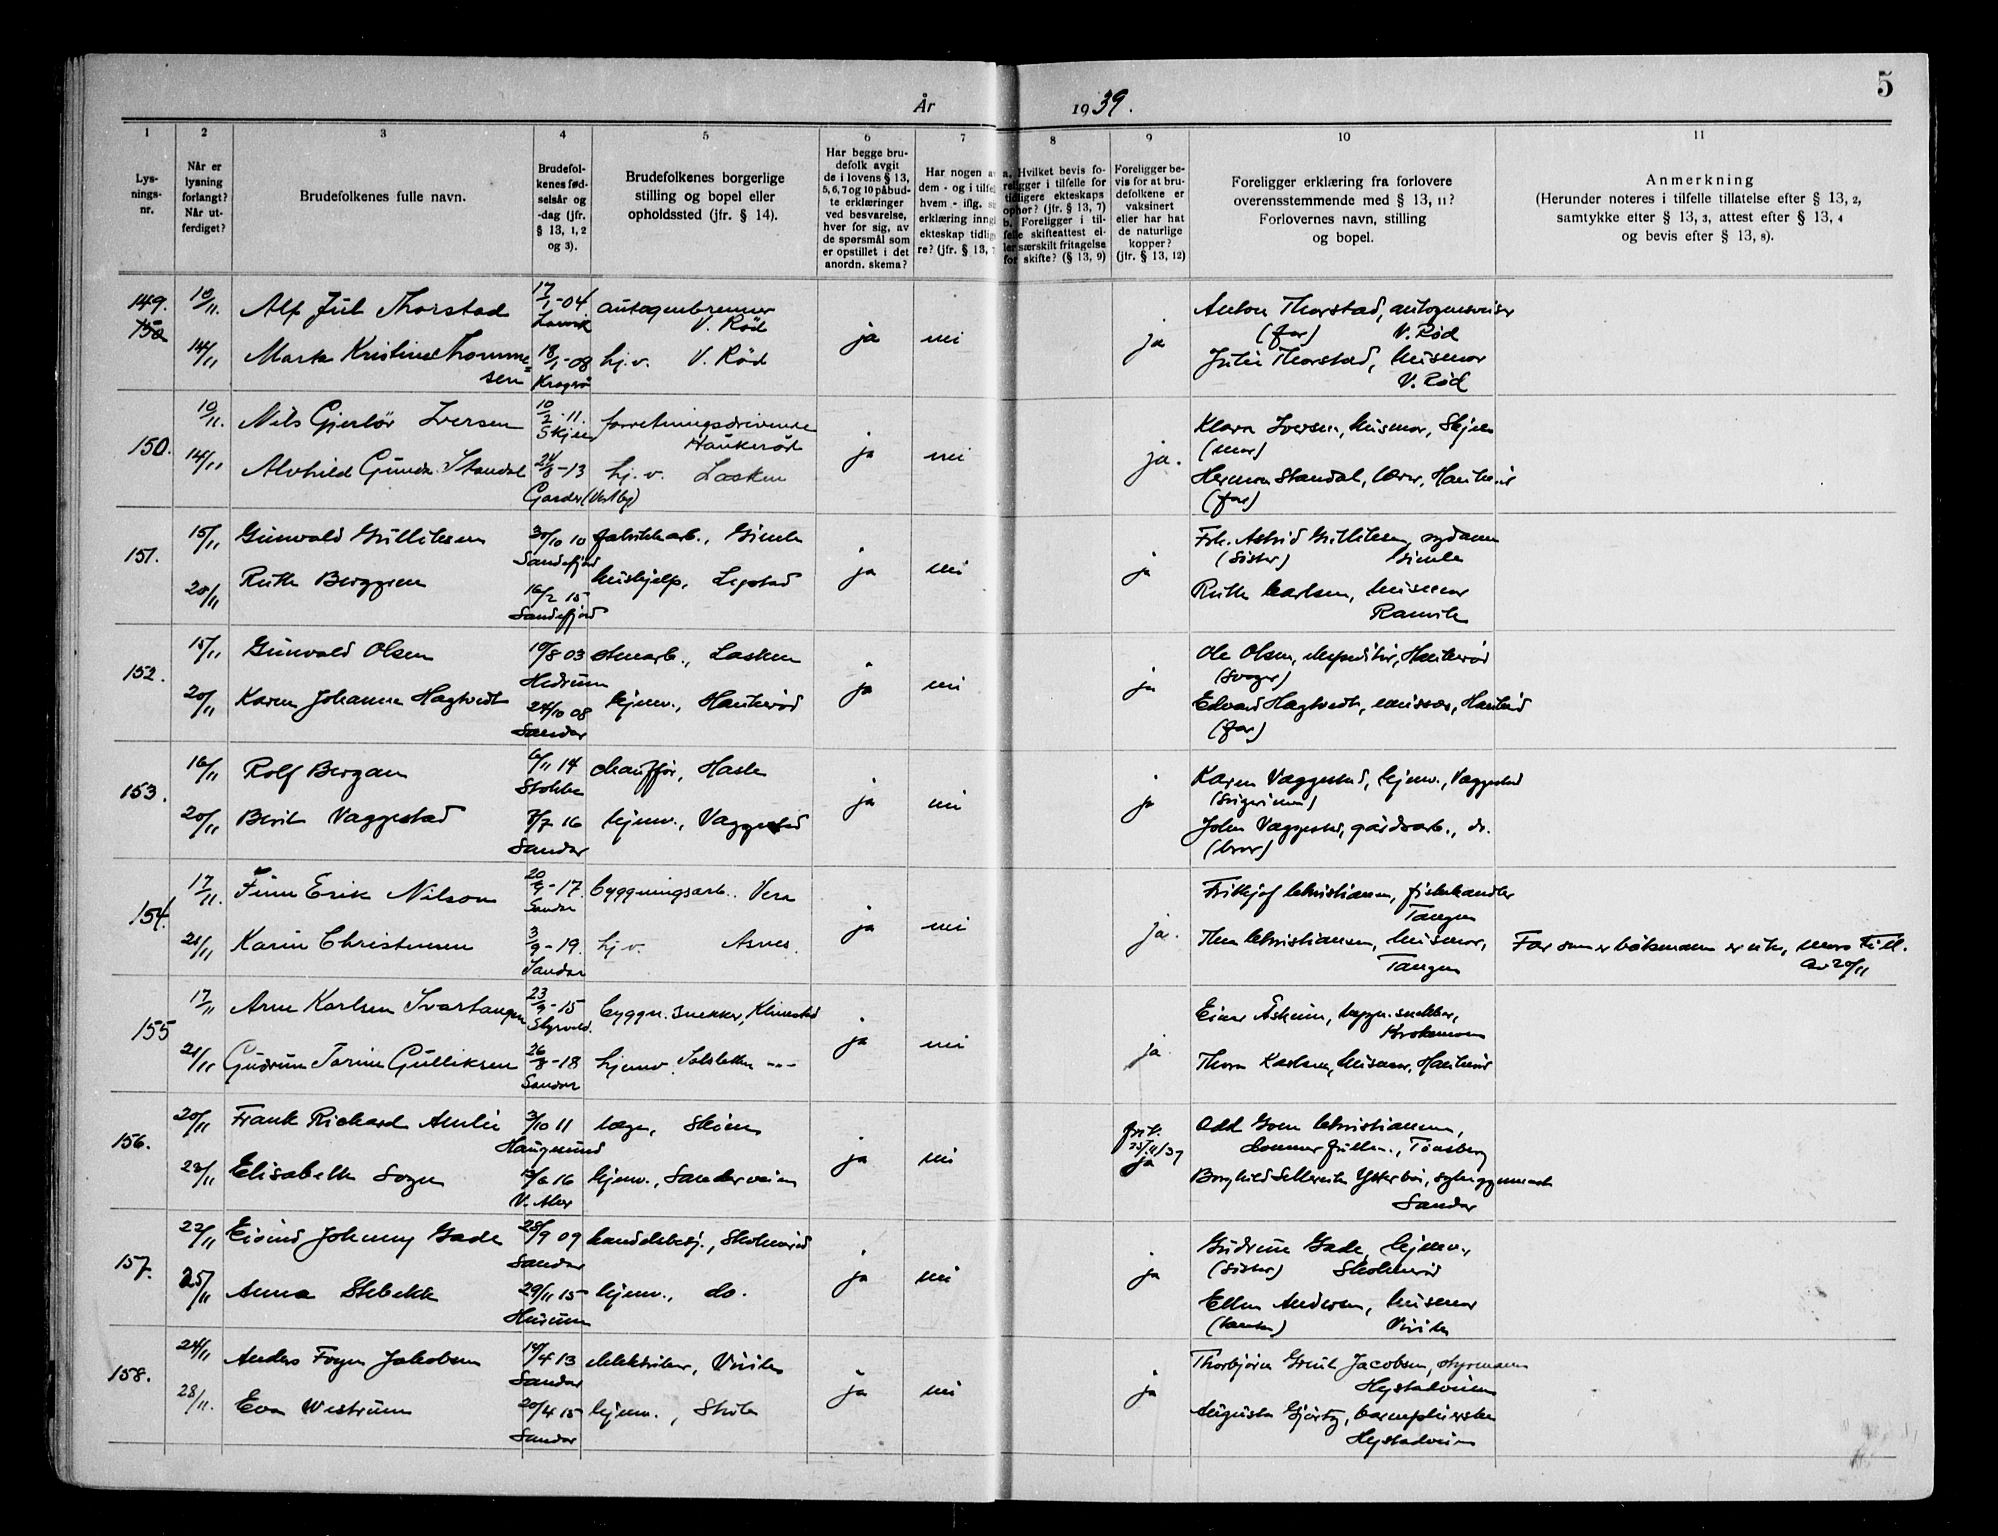 5
År 1939.
1 2 3 4 5 6 7 8 9 10 11
Lys-
nings-
nr.
Når er
lysning
forlangt?
Når ut-
ferdiget?
Brudefolkenes fulle navn.
Brudefol-
kenes fød-
selsår og
-dag (jfr.
§ 13, 1, 2
og 3).
Brudefolkenes borgerlige
stilling og bopel eller
opholdssted (jfr. § 14).
Har begge bru-
defolk avgit
de i lovens § 13,
5, 6, 7 og 10 påbud-
te erklæringer
ved besvarelse,
hver for sig, av
de spørsmål som
er opstillet i det
anordn. skema?
Har nogen a
dem - og i tilfel
hvem - iflg. s
erklæring inng
ekteskap tidlig
re? (jfr. § 13,
a. Hvilket bevis fo-
religger i tilfelle for
tidligere ekteskaps
ophør? (jfr. § 13, 7)
b. Foreligger i til-
felle skifteattest el-
ler særskilt fritagelse
for skifte? (§ 13, 9)
Foreligger be-
vis for at bru-
defolkene er
vaksinert
eller har hat
de naturlige
kopper?
(jfr. § 13, 12)
Foreligger erklæring fra forlovere
overensstemmende med § 13, 11?
Forlovernes navn, stilling
og bopel.
Anmerkning
(Herunder noteres i tilfelle tillatelse efter § 13, 2,
samtykke efter § 13, 3, attest efter § 13, 4
og bevis efter § 13, 8).
149. 10/11 Alf Jul Thorstad 17/1-04. Larvik autogenbrenner V. Rød ja nei ja Anton Thorstad, (far) V. Rød
150
14/11 Marta Kristine Thomme=
sen 18/1-08 Kragerø hj.v. V. Rød Julie Thorstad, husmor V. Rød
150. 10/11 Nils Gjerløv Iversen 10/2-11. Skien forretningsdrivende Haukerød ja nei ja. Klara Iversen, husmor, Skien (mor)
14/11 Alvhild Gunda Standal 24/8-13 Garder (Vestby) hj.v. Lasken Herman Standal, lærer, Haukerød (far)
151. 15/11 Gunvald Gulliksen 30/10 10 Sandefjord fabrikkarb., Gimle ja nei ja Frk. Astrid Gulliksen, sydame (søster) Gimle
20/11 Ruth Berggren 16/2 15 Sandefjord hushjelp, Ruth Carlsen, husmor Ranvik
152. 15/11 Gunvald Olsen 19/8 03 Hedrum Lasken ja nei ja Ole Olsen, ekspeditør, Haukerød (svoger)
20/11 Karen Johanne Hagtvedt 24/10 08 Sandar hjemv., Haukerød Edvard Hagtvedt, Haukerød (far)
153. 16/11 Rolf Bergan 6/11 14 Stokke chauffør, Hasle ja nei ja Karen Vaggestad, hjemv., Vaggestad (svigerinne)
20/11 Berit Vaggestad 7/7 16 Sandar hjemv., Vaggestad John Vaggestad, gårdsarb., do. (bror)
154. 17/11. Finn Erik Nilson 20/9-17. Sandar byggningsarb. Vera ja nei ja. Frithjof Christiansen, fiskehandler Tangen
21/11 Karin Christensen 3/9-19. Sandar hj.v. Asnes. Thea Christiansen, husmor, Tangen Far som er båtsmann er ute, mors till. av 20/11
155 17/11 Arne Karlsen Svartangen 23/9-15 Styrvold. byggn. snekker, Klinestad ja nei ja. Einar Askim, bygn. snekker, Krokemoen
21/11 Gudrun Torine Gulliksen 26/8-18 Sandar hjemv. Thora Karlsen, husmor, Haukerød
156. 20/11 Frank Richard Amlie 3/10 11 Haugesund læge, Skien ja nei ja Odd Christiansen, Tønsberg
23/11 Elisabeth Sogn 13/6 16 V. Aker hjemv., Sanderveien Borghild Ytterbøe, sykegymnast Sandar
157. 22/11 Eivind Johnny Gade 28/9 09 Sandar handelsbestj., Skolmerød ja nei ja Gudrun Gade, hjemv., (søster) Skolmerød
25/11 Anna Stebekk 29/11 15 Hurum hjemv., do. Ellen Andersen, husmor (tante) Virik
158. 24/11 Anders Fogn Jakobsen 14/4 13 Sandar elektriker, Virik ja nei ja Thorbjørn Jacobsen, styrmann Hystadveien
28/11. Eva Westrum 20/4 15 Sandar hjemv., Augusta Gjertz, barnepleierske Hystadveien